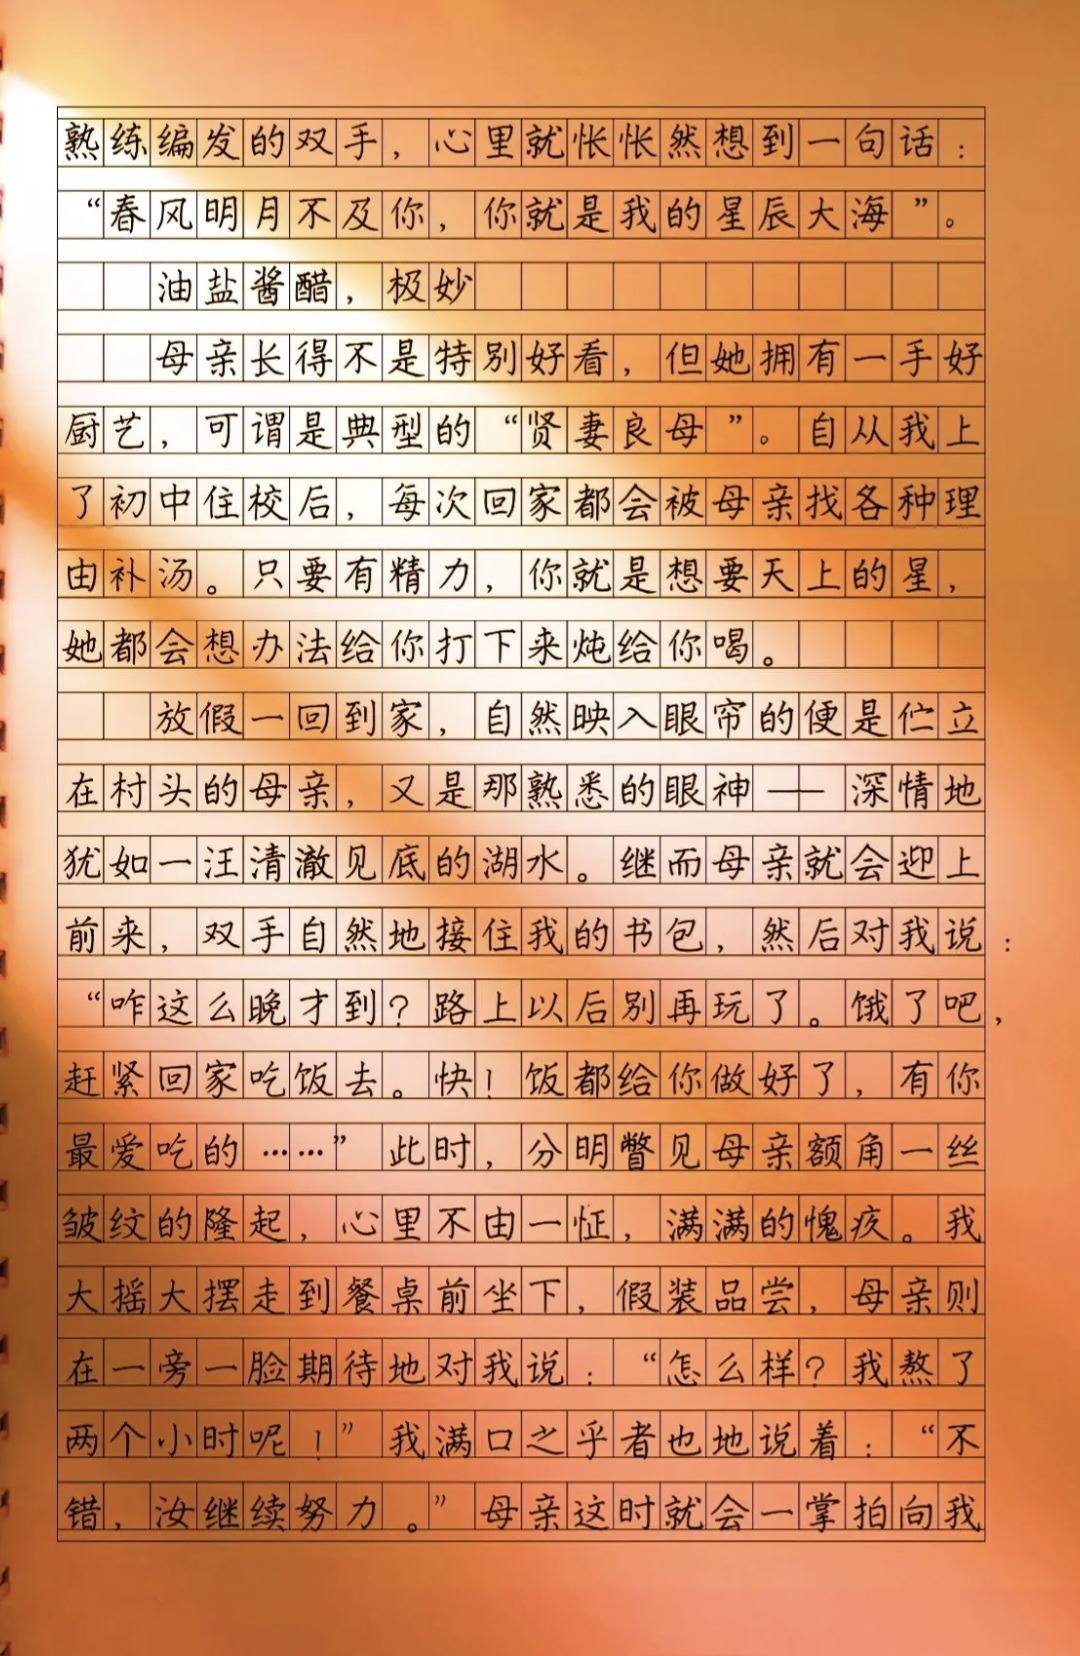 熟练编发的双手，心里就怅怅然想到一句话：
“春风明月不及你，你就是我的星辰大海”。
油盐酱醋，极妙
母亲长得不是特别好看，但她拥有一手好
厨艺，可谓是典型的“贤妻良母”。自从我上
了初中住校后，每次回家都会被母亲找各种理
由补汤。只要有精力，你就是想要天上的星，
她都会想办法给你打下来炖给你喝。
放假一回到家，自然映入眼帘的便是伫立
在村头的母亲，又是那熟悉的眼神——深情地
犹如一汪清澈见底的湖水。继而母亲就会迎上
前来，双手自然地接住我的书包，然后对我说：
“咋这么晚才到？路上以后别再玩了。饿了吧，
赶紧回家吃饭去。快！饭都给你做好了，有你
最爱吃的……”此时，分明瞥见母亲额角一丝
皱纹的隆起，心里不由一怔，满满的愧疚。我
大摇大摆走到餐桌前坐下，假装品尝，母亲则
在一旁一脸期待地对我说：“怎么样？我熬了
两个小时呢！”我满口之乎者也地说着：“不
错，汝继续努力。”母亲这时就会一掌拍向我